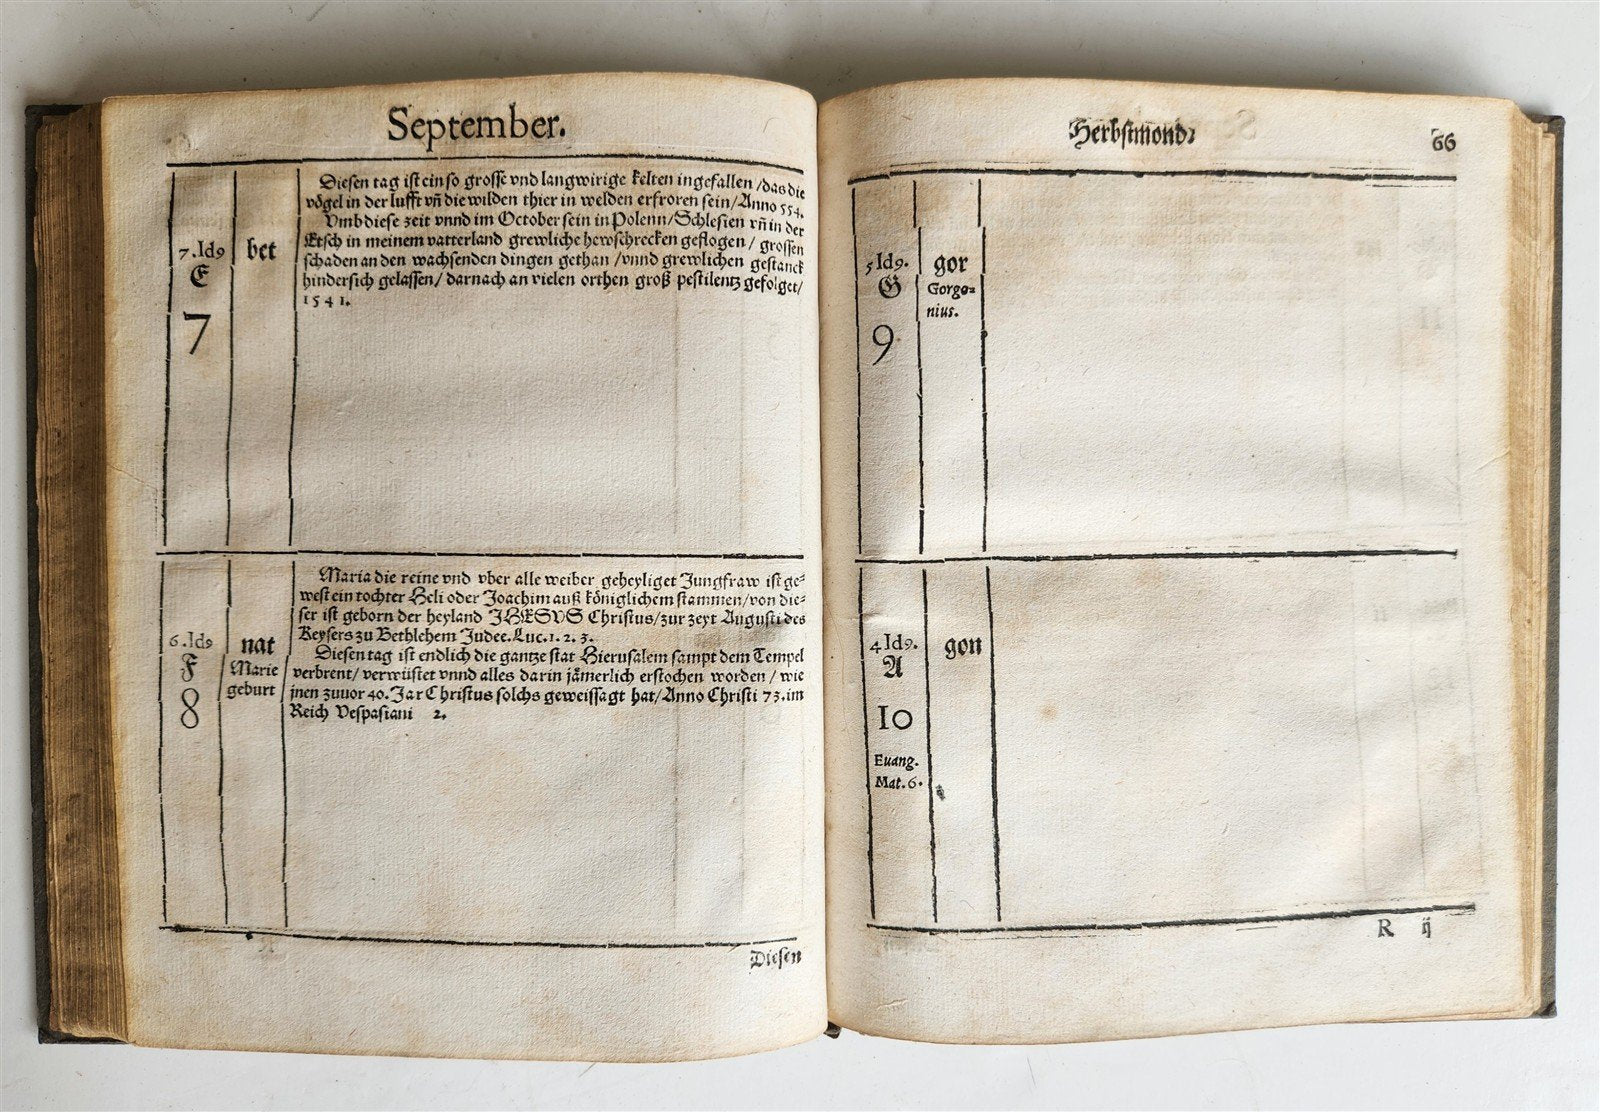 September.
7.Id9
E
7
bet
Diesen tag ist ein so grosse vnd langwirige kelten ingefallen/das die
vögel in der lufft vñ die wilden thier in welden erfroren sein/Anno 554.
Vmb diese zeit vnnd im October sein in Polenn/Schlesien vñ in der
Etsch in meinem vatterland grewliche hewschrecken geflogen/ grossen
schaden an den wachsenden dingen gethan/vnnd grewlichen gestanck
hindersich gelassen/darnach an vielen orthen groß pestilentz gefolget/
1541.
6.Id9
F
8
nat
Marie
geburt
Maria die reine vnd vber alle weiber geheyliget Jungfraw ist ge=
west ein tochter Heli oder Joachim auß königlichem stammen/von die=
ser ist geborn der heyland JHESVS Christus/zur zeyt Augusti des
Keysers zu Bethlehem Judee.Luc.1.2.3.
Diesen tag ist endlich die gantze stat Hierusalem sampt dem Tempel
verbrent/verwüstet vnnd alles darin jämerlich erstochen worden/wie
jnen zuuor 40.Jar Christus solchs geweissagt hat/Anno Christi 73.im
Reich Vespasiani 2.
Diesen
Herbstmond.
66
5Id9.
G
9
gor
Gorgo=
nius.
4Id9.
A
10
Euang.
Mat.6.
gon
R ij